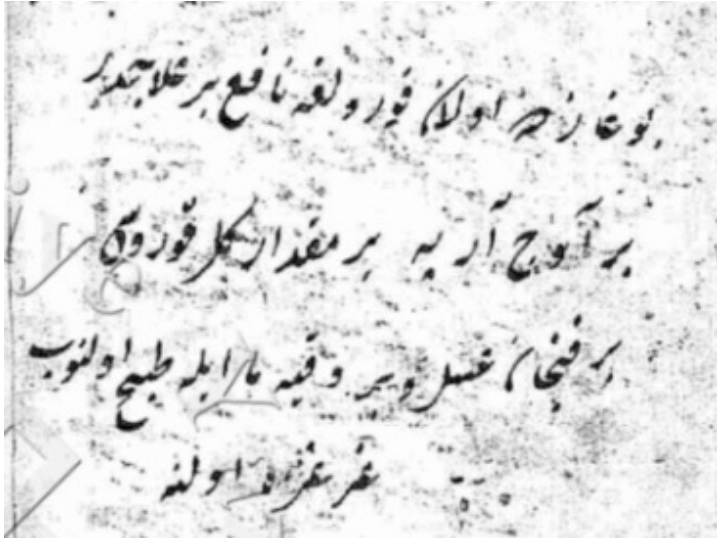 بوغازده اولان قورولغه نافع بر علاجدر
بر آوج آرپه بر مقدار كل قوروسى
بر فنجان عسل وبر وقيه ما ايله طبخ اولنوب
غرغره اولنه